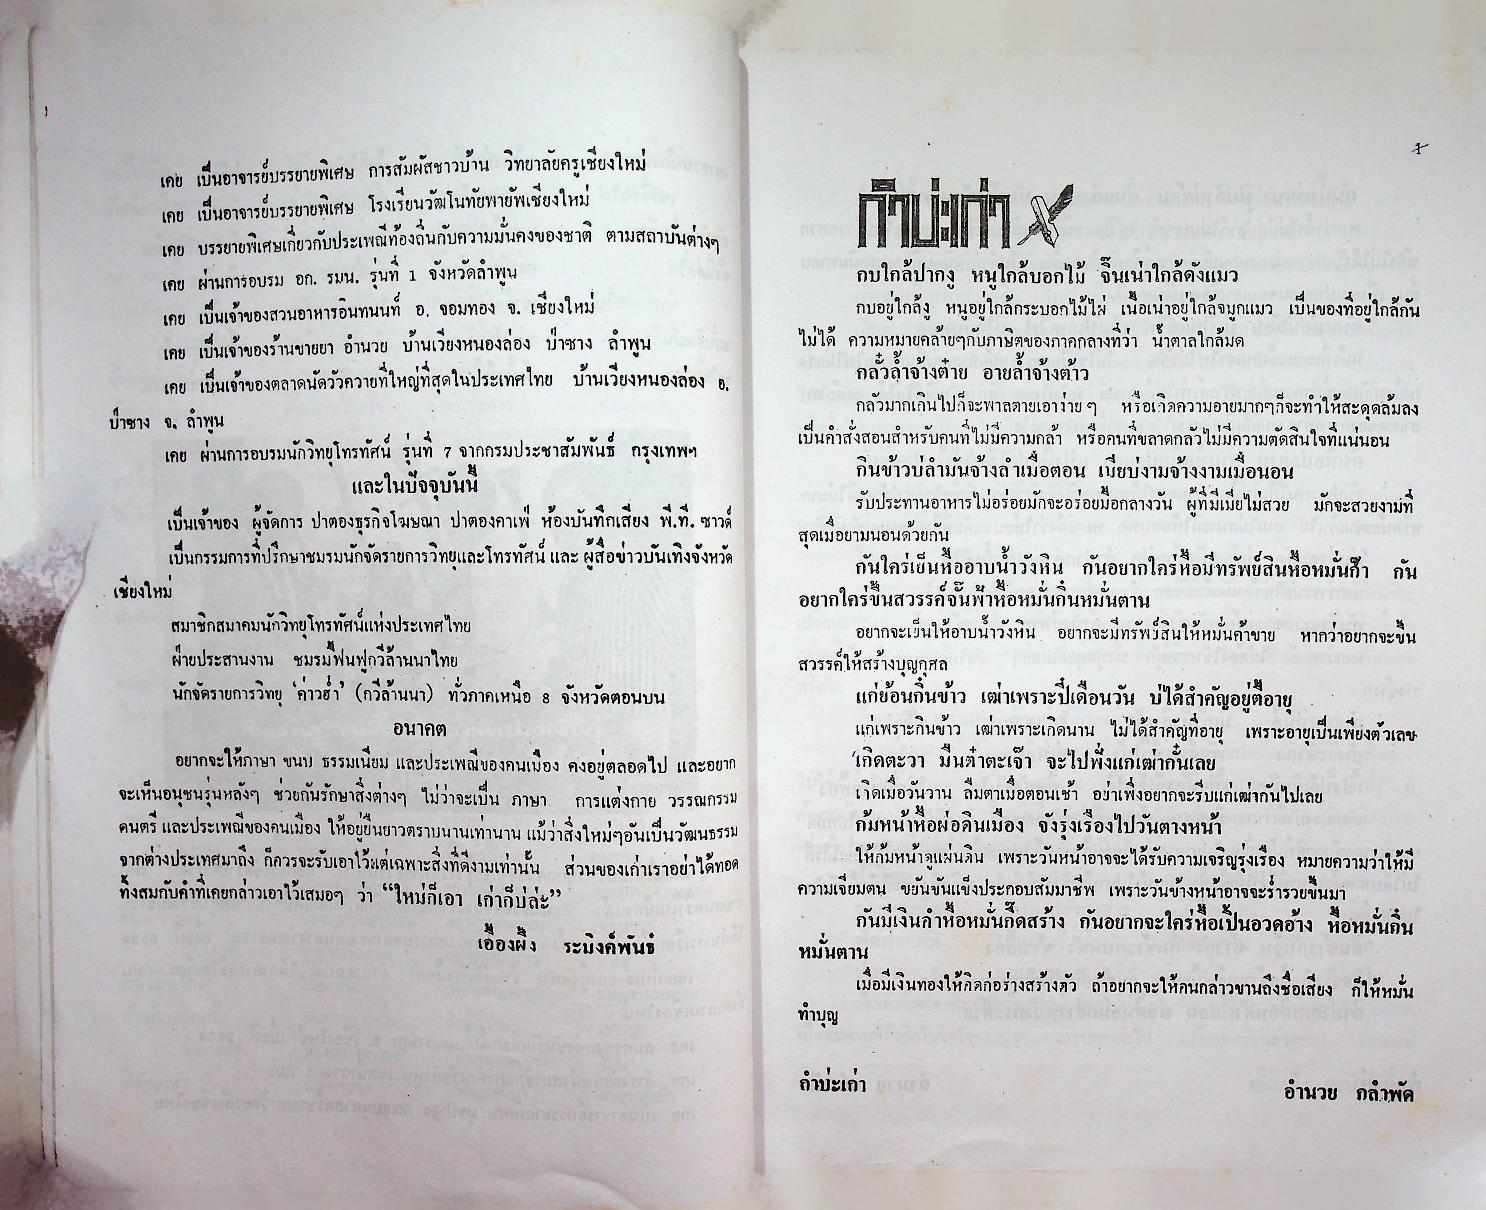 เคย เป็นอาจารย์บรรยายพิเศษ การสัมผัสชาวบ้าน วิทยาลัยครูเชียงใหม่
เคย เป็นอาจารย์บรรยายพิเศษ โรงเรียนวัฒโนทัยพายัพเชียงใหม่
เคย บรรยายพิเศษเกี่ยวกับประเพณีท้องถิ่นกับความมั่นคงของชาติ ตามสถาบันต่างๆ
เคย ผ่านการอบรม อก. รมน. รุ่นที่ 1 จังหวัดลำพูน
เคย เป็นเจ้าของสวนอาหารอินทนนท์ อ. จอมทอง จ. เชียงใหม่
เคย เป็นเจ้าของร้านขายยา อำนวย บ้านเวียงหนองล่อง ป่าซาง ลำพูน
เคย เป็นเจ้าของตลาดนัดวัวควายที่ใหญ่ที่สุดในประเทศไทย บ้านเวียงหนองล่อง อ.
ป่าซาง จ. ลำพูน
เคย ผ่านการอบรมนักวิทยุโทรทัศน์ รุ่นที่ 7 จากกรมประชาสัมพันธ์ กรุงเทพฯ
และในปัจจุบันนี้
เป็นเจ้าของ ผู้จัดการ ปาตองธุรกิจโฆษณา ปาตองคาเฟ่ ห้องบันทึกเสียง พี.ที. ซาวด์
เป็นกรรมการที่ปรึกษาชมรมนักจัดรายการวิทยุและโทรทัศน์ และ ผู้สื่อข่าวบันเทิงจังหวัด
เชียงใหม่
สมาชิกสมาคมนักวิทยุโทรทัศน์แห่งประเทศไทย
ฝ่ายประสานงาน ชมรมฟื้นฟูกวีล้านนาไทย
นักจัดรายการวิทยุ ‘ค่าวฮ่ำ’ (กวีล้านนา) ทั่วภาคเหนือ 8 จังหวัดตอนบน
อนาคต
อยากจะให้ภาษา ขนบ ธรรมเนียม และประเพณีของคนเมือง คงอยู่ตลอดไป และอยาก
จะเห็นอนุชนรุ่นหลังๆ ช่วยกันรักษาสิ่งต่างๆ ไม่ว่าจะเป็น ภาษา การแต่งกาย วรรณกรรม
ดนตรี และประเพณีของคนเมือง ให้อยู่ยืนยาวตราบนานเท่านาน แม้ว่าสิ่งใหม่ๆอันเป็นวัฒนธรรม
จากต่างประเทศมาถึง ก็ควรจะรับเอาไว้แต่เฉพาะสิ่งที่ดีงามเท่านั้น ส่วนของเก่าเราอย่าได้ทอด
ทิ้งสมกับคำที่เคยกล่าวเอาไว้เสมอๆ ว่า “ใหม่ก็เอา เก่าก็บ่ล่ะ”
เอื้องผึ้ง ระมิงค์พันธ์
กำบ่ะเก่า
กบใกล้ปากงู หนูใกล้บอกไม้ จิ๊นเน่าใกล้ดังแมว
กบอยู่ใกล้งู หนูอยู่ใกล้กระบอกไม้ไผ่ เนื้อเน่าอยู่ใกล้จมูกแมว เป็นของที่อยู่ใกล้กัน
ไม่ได้ ความหมายคล้ายๆกับภาษิตของภาคกลางที่ว่า น้ำตาลใกล้มด
กลั๋วล้ำจ้างต๋าย อายล้ำจ้างต้าว
กลัวมากเกินไปก็จะพาลตายเอาง่าย ๆ หรือเกิดความอายมากๆก็จะทำให้สะดุดล้มลง
เป็นคำสั่งสอนสำหรับคนที่ไม่มีความกล้า หรือคนที่ขลาดกลัวไม่มีความตัดสินใจที่แน่นอน
กินข้าวบ่ลำมันจ้างลำเมื่อตอน เมียบ่งามจ้างงามเมื่อนอน
รับประทานอาหารไม่อร่อยมักจะอร่อยมื้อกลางวัน ผู้ที่มีเมียไม่สวย มักจะสวยงามที่
สุดเมื่อยามนอนด้วยกัน
กันใคร่เย็นหื้ออาบน้ำวังหิน กันอยากใคร่หื้อมีทรัพย์สินหื้อหมั่นก๊า กัน
อยากใคร่ขึ้นสวรรค์จั๊นฟ้าหื้อหมั่นกิ๋นหมั่นตาน
อยากจะเย็นให้อาบน้ำวังหิน อยากจะมีทรัพย์สินให้หมั่นค้าขาย หากว่าอยากจะขึ้น
สวรรค์ให้สร้างบุญกุศล
แก่ย้อนกิ๋นข้าว เฒ่าเพราะปี๋เดือนวัน บ่ได้สำคัญอยู่ตี้อายุ
แก่เพราะกินข้าว เฒ่าเพราะเกิดนาน ไม่ได้สำคัญที่อายุ เพราะอายุเป็นเพียงตัวเลข
เกิดตะวา มืนต๋าตะเจ๊า จะไปฟั่งแก่เฒ่ากั๋นเลย
เกิดเมื่อวันวาน ลืมตาเมื่อตอนเช้า อย่าเพิ่งอยากจะรีบแก่เฒ่ากันไปเลย
ก้มหน้าหื้อผ่อดินเมือง จังรุ่งเรืองไปวันตางหน้า
ให้ก้มหน้าดูแผ่นดิน เพราะวันหน้าอาจจะได้รับความเจริญรุ่งเรือง หมายความว่าให้มี
ความเจียมตน ขยันขันแข็งประกอบสัมมาชีพ เพราะวันข้างหน้าอาจจะร่ำรวยขึ้นมา
กันมีเงินกำหื้อหมั่นกึ๊ดสร้าง กันอยากจะใคร่หื้อเปิ้นอวดอ้าง หื้อหมั่นกิ๋น
หมั่นตาน
เมื่อมีเงินทองให้คิดก่อร่างสร้างตัว ถ้าอยากจะให้คนกล่าวขานถึงชื่อเสียง ก็ให้หมั่น
ทำบุญ
กำบ่ะเก่า
อำนวย กลำพัด